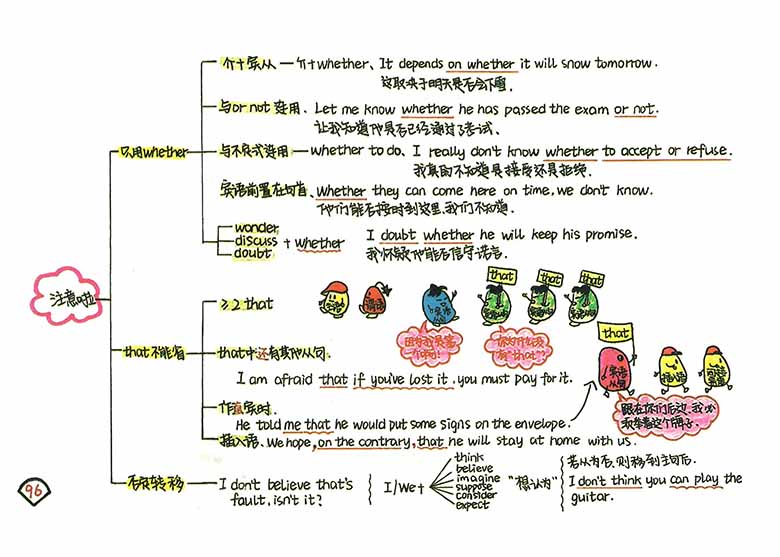 注意啦
只用whether
介+宾从 — 介+whether、It depends on whether it will snow tomorrow.
这取决于明天是否会下雪.
与or not 连用、Let me know whether he has passed the exam or not.
让我知道他是否已经通过了考试.
与不定式连用 — whether to do、I really don't know whether to accept or refuse.
我真的不知道是接受还是拒绝.
宾语前置在句首、Whether they can come here on time, we don't know.
他们能否按时到这里,我们不知道.
wonder
discuss
doubt
+ whether
I doubt whether he will keep his promise.
我怀疑他能否信守诺言.
that不能省
≥2 that
主语
谓语
宾语从句
that
宾语从句
that
宾语从句
that
宾语从句
因为我是第一个啊!
你为什么没有"that"?
that中还有其他从句.
I am afraid that if you've lost it. you must pay for it.
that
宾语从句
插入语
间语宾语
跟在你们后边,我必须举着这个牌子.
作直宾时.
He told me that he would put some signs on the envelope.
插入语. We hope, on the contrary, that he will stay at home with us.
否定转移
I don't believe that's
fault, isn't it?
I/We+
think
believe
imagine
suppose
consider
expect
"想认为"
若从为否,则移到主句后.
I don't think you can play the
guitar.
96